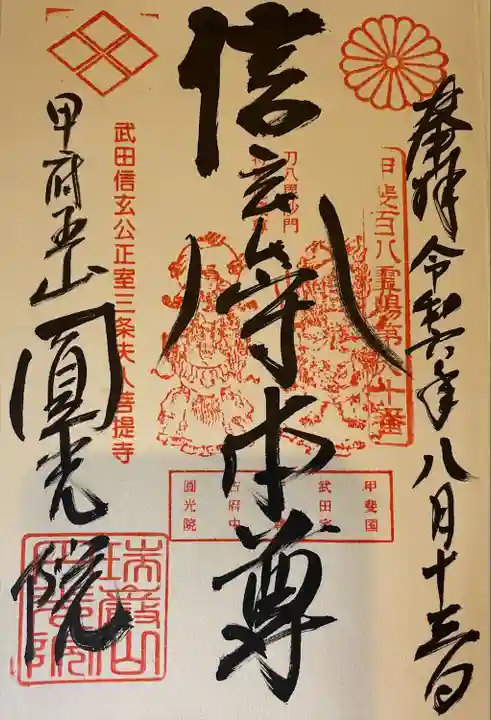 奉拝 令和六年八月十三日
甲斐百八霊場第六十番
信玄守本尊
刀八毘沙門
武田信玄公正室三条夫人菩提寺
甲府五山 圓光院
甲斐国
武田
古府中
圓光院
瑞巌山